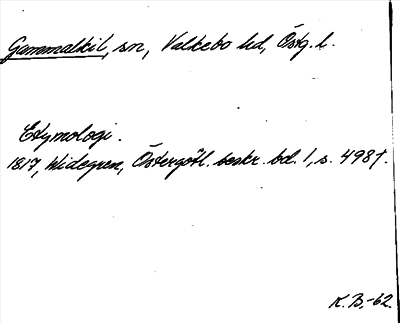 Gammalkil, sn, Valkebo hd, Östg. l.
Etymologi.
1817, Widegren, Östergötl. beskr. bd. 1, s. 498f.
K.B.-62.